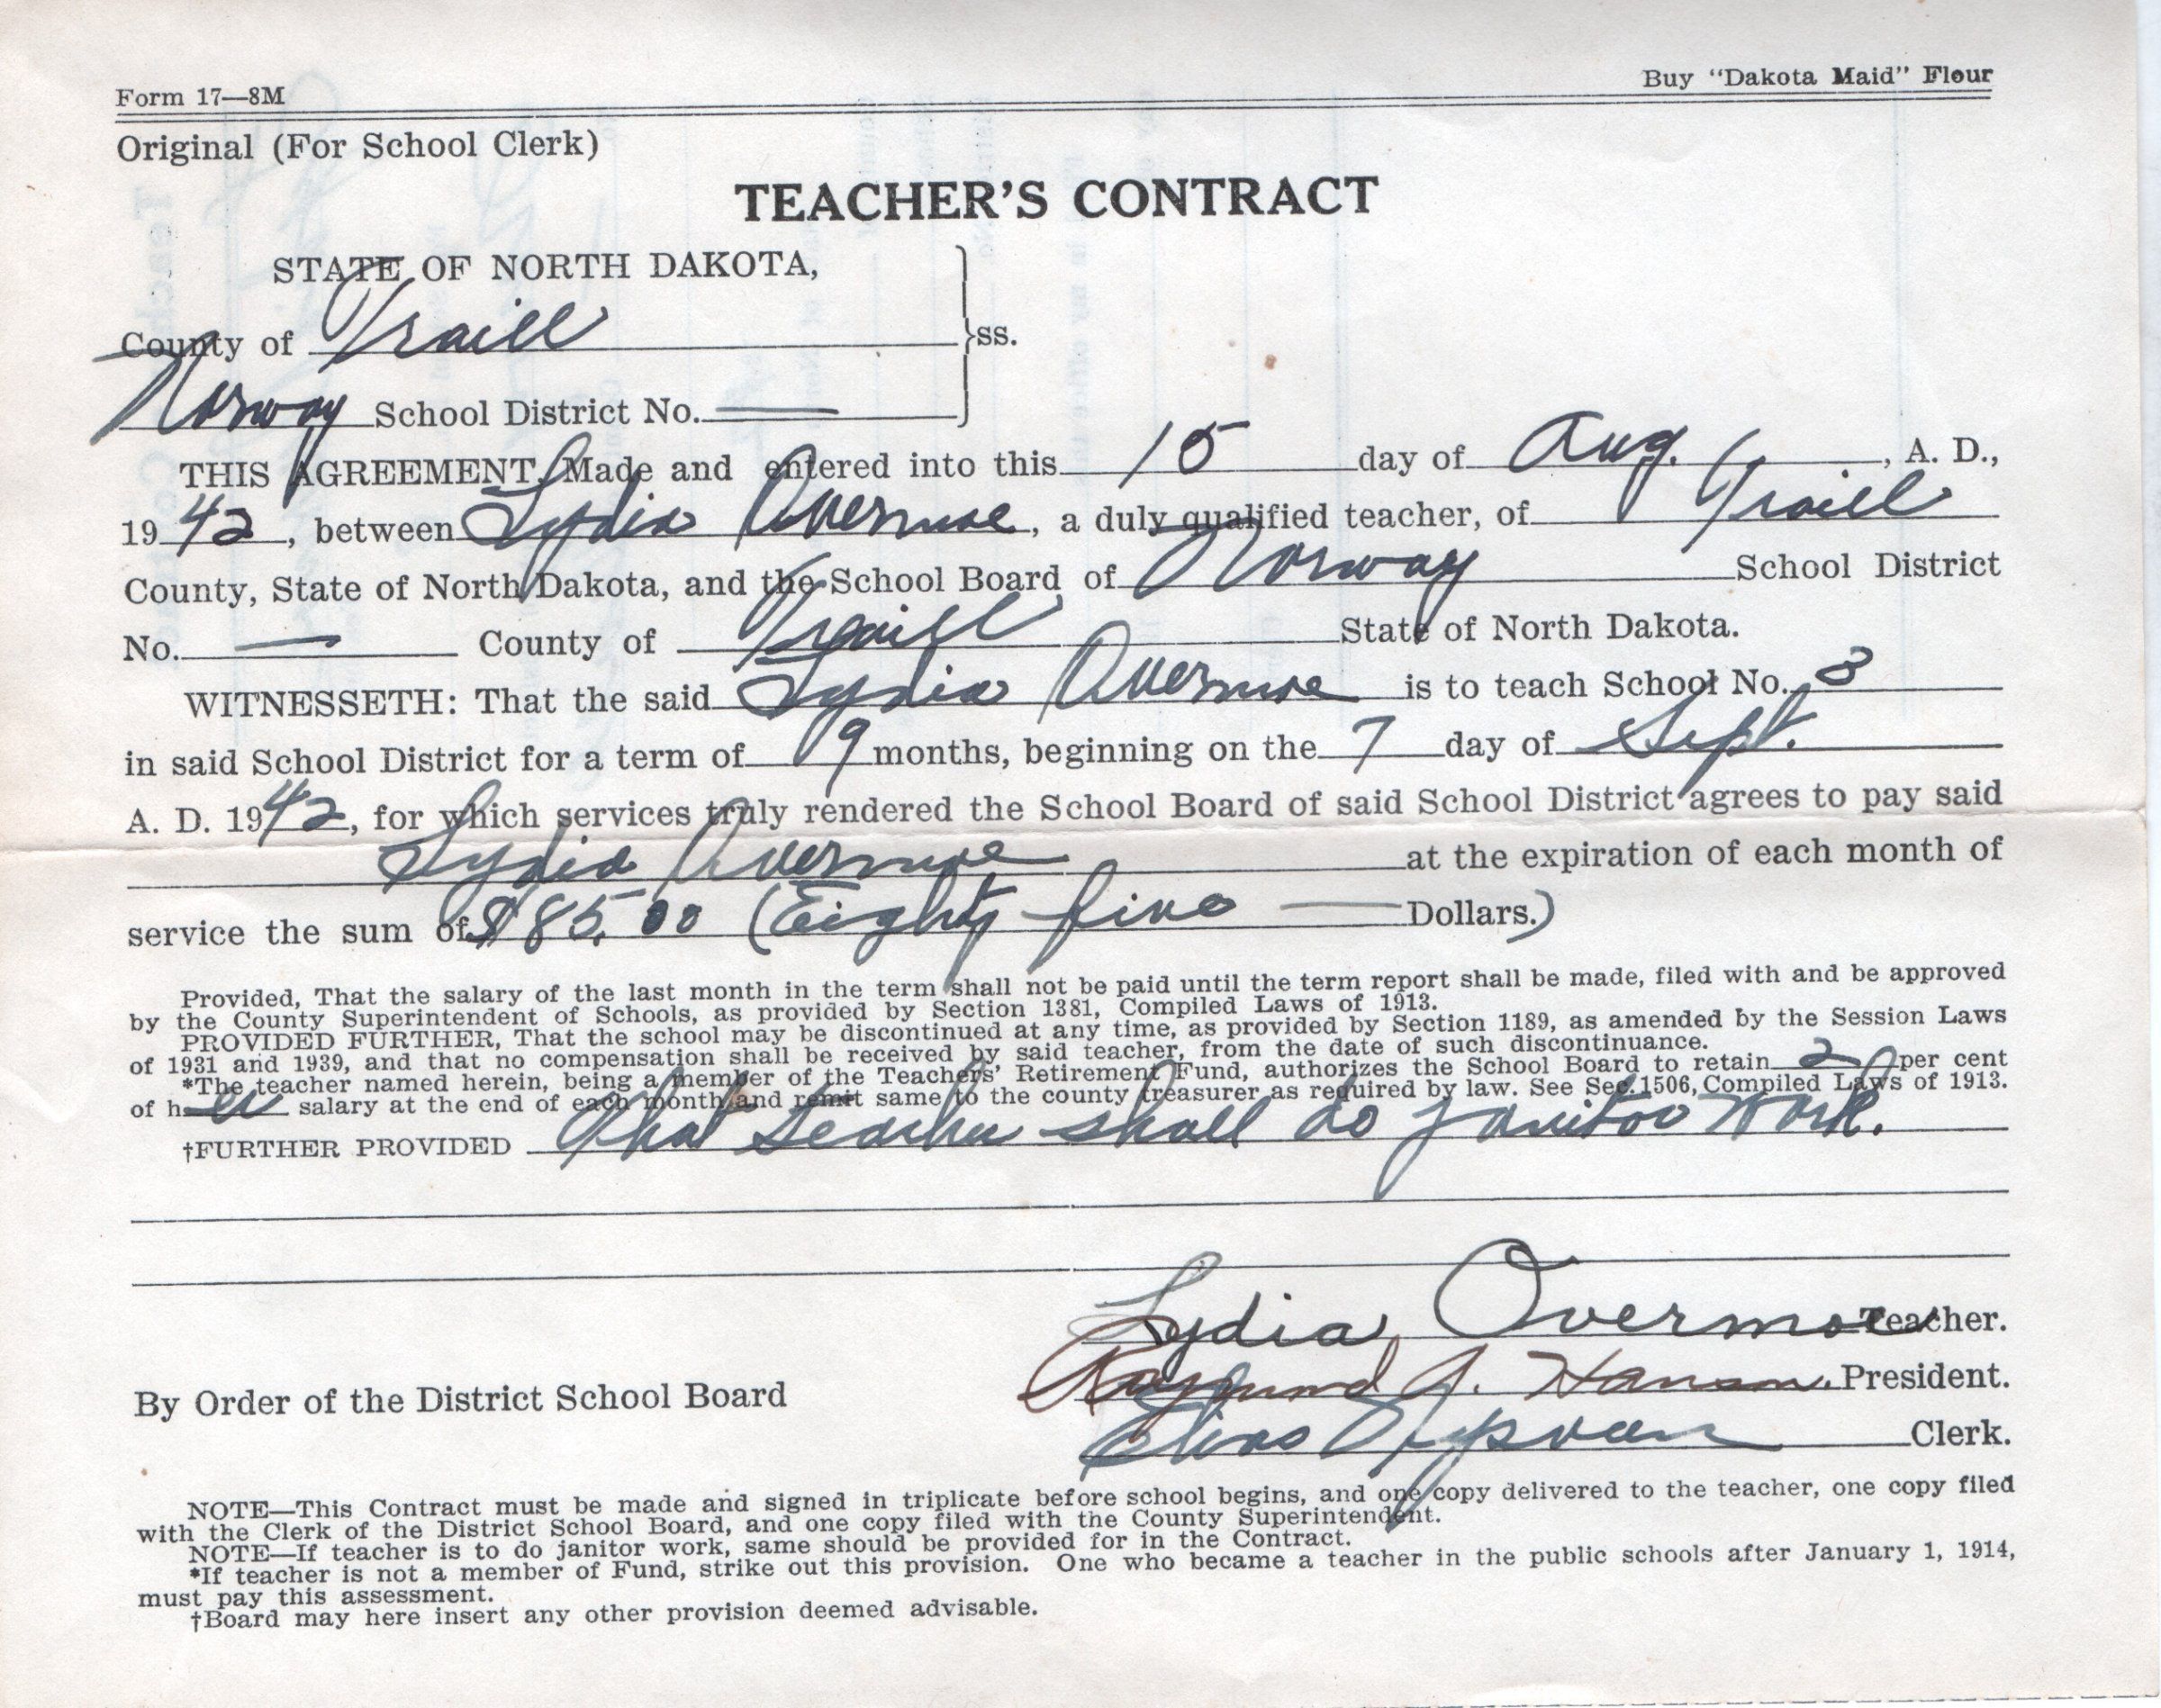 Form 17—8M
Buy "Dakota Maid" Flour
Original (For School Clerk)
TEACHER'S CONTRACT
STATE OF NORTH DAKOTA,
County of Traill
}ss.
Norway School District No. —
THIS AGREEMENT, Made and entered into this 15 day of Aug., A. D.,
1942, between Lydia Overmoe, a duly qualified teacher, of Traill
County, State of North Dakota, and the School Board of Norway School District
No. — County of Traill State of North Dakota.
WITNESSETH: That the said Lydia Overmoe is to teach School No. 3
in said School District for a term of 9 months, beginning on the 7 day of Sept.
A. D. 1942, for which services truly rendered the School Board of said School District agrees to pay said
Lydia Overmoe at the expiration of each month of
service the sum of $85.00 (Eighty five — Dollars.)
Provided, That the salary of the last month in the term shall not be paid until the term report shall be made, filed with and be approved
by the County Superintendent of Schools, as provided by Section 1381, Compiled Laws of 1913.
PROVIDED FURTHER, That the school may be discontinued at any time, as provided by Section 1189, as amended by the Session Laws
of 1931 and 1939, and that no compensation shall be received by said teacher, from the date of such discontinuance.
*The teacher named herein, being a member of the Teachers' Retirement Fund, authorizes the School Board to retain 2 per cent
of her salary at the end of each month and remit same to the county treasurer as required by law. See Sec. 1506, Compiled Laws of 1913.
†FURTHER PROVIDED That teacher shall do janitor work.
Lydia Overmoe Teacher.
By Order of the District School Board
Raymond J. Hanson. President.
Elias Clerk.
NOTE—This Contract must be made and signed in triplicate before school begins, and one copy delivered to the teacher, one copy filed
with the Clerk of the District School Board, and one copy filed with the County Superintendent.
NOTE—If teacher is to do janitor work, same should be provided for in the Contract.
*If teacher is not a member of Fund, strike out this provision. One who became a teacher in the public schools after January 1, 1914,
must pay this assessment.
†Board may here insert any other provision deemed advisable.